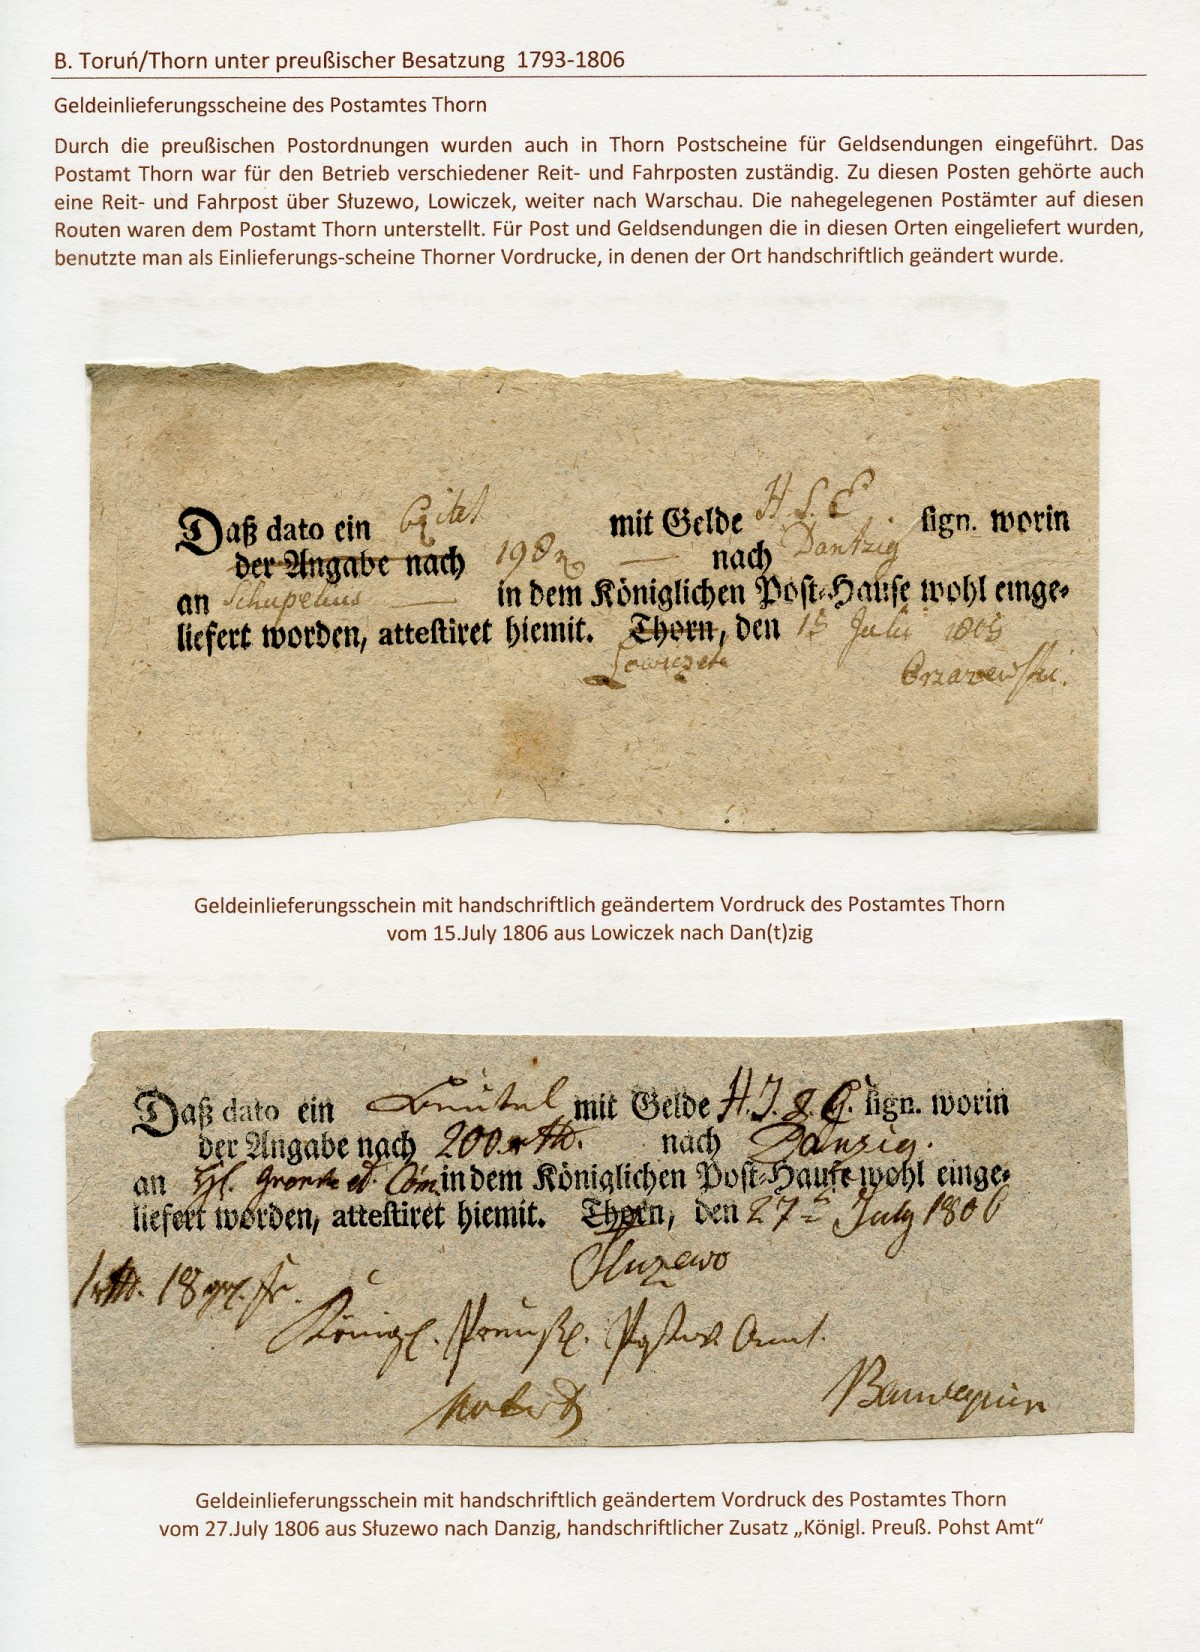 B. Toruń/Thorn unter preußischer Besatzung 1793-1806
Geldeinlieferungsscheine des Postamtes Thorn
Durch die preußischen Postordnungen wurden auch in Thorn Postscheine für Geldsendungen eingeführt. Das
Postamt Thorn war für den Betrieb verschiedener Reit- und Fahrposten zuständig. Zu diesen Posten gehörte auch
eine Reit- und Fahrpost über Słuzewo, Lowiczek, weiter nach Warschau. Die nahegelegenen Postämter auf diesen
Routen waren dem Postamt Thorn unterstellt. Für Post und Geldsendungen die in diesen Orten eingeliefert wurden,
benutzte man als Einlieferungs-scheine Thorner Vordrucke, in denen der Ort handschriftlich geändert wurde.
Daß dato ein mit Gelde H. S. E sign. worin
der Angabe nach 198 nach Dantzig
an Schupelius in dem Königlichen Post-Hause wohl einge-
liefert worden, attestiret hiemit. Thorn, den 15 Julii 1806
Lowiczek
Geldeinlieferungsschein mit handschriftlich geändertem Vordruck des Postamtes Thorn
vom 15.July 1806 aus Lowiczek nach Dan(t)zig
Daß dato ein Beutel mit Gelde H. J. & C. sign. worin
der Angabe nach 200 rth. nach Danzig.
an in dem Königlichen Post-Hause wohl einge-
liefert worden, attestiret hiemit. Thorn, den 27 July 1806
Sluzewo
18
Königl. Preuß. Amt.
Geldeinlieferungsschein mit handschriftlich geändertem Vordruck des Postamtes Thorn
vom 27.July 1806 aus Słuzewo nach Danzig, handschriftlicher Zusatz „Königl. Preuß. Pohst Amt“